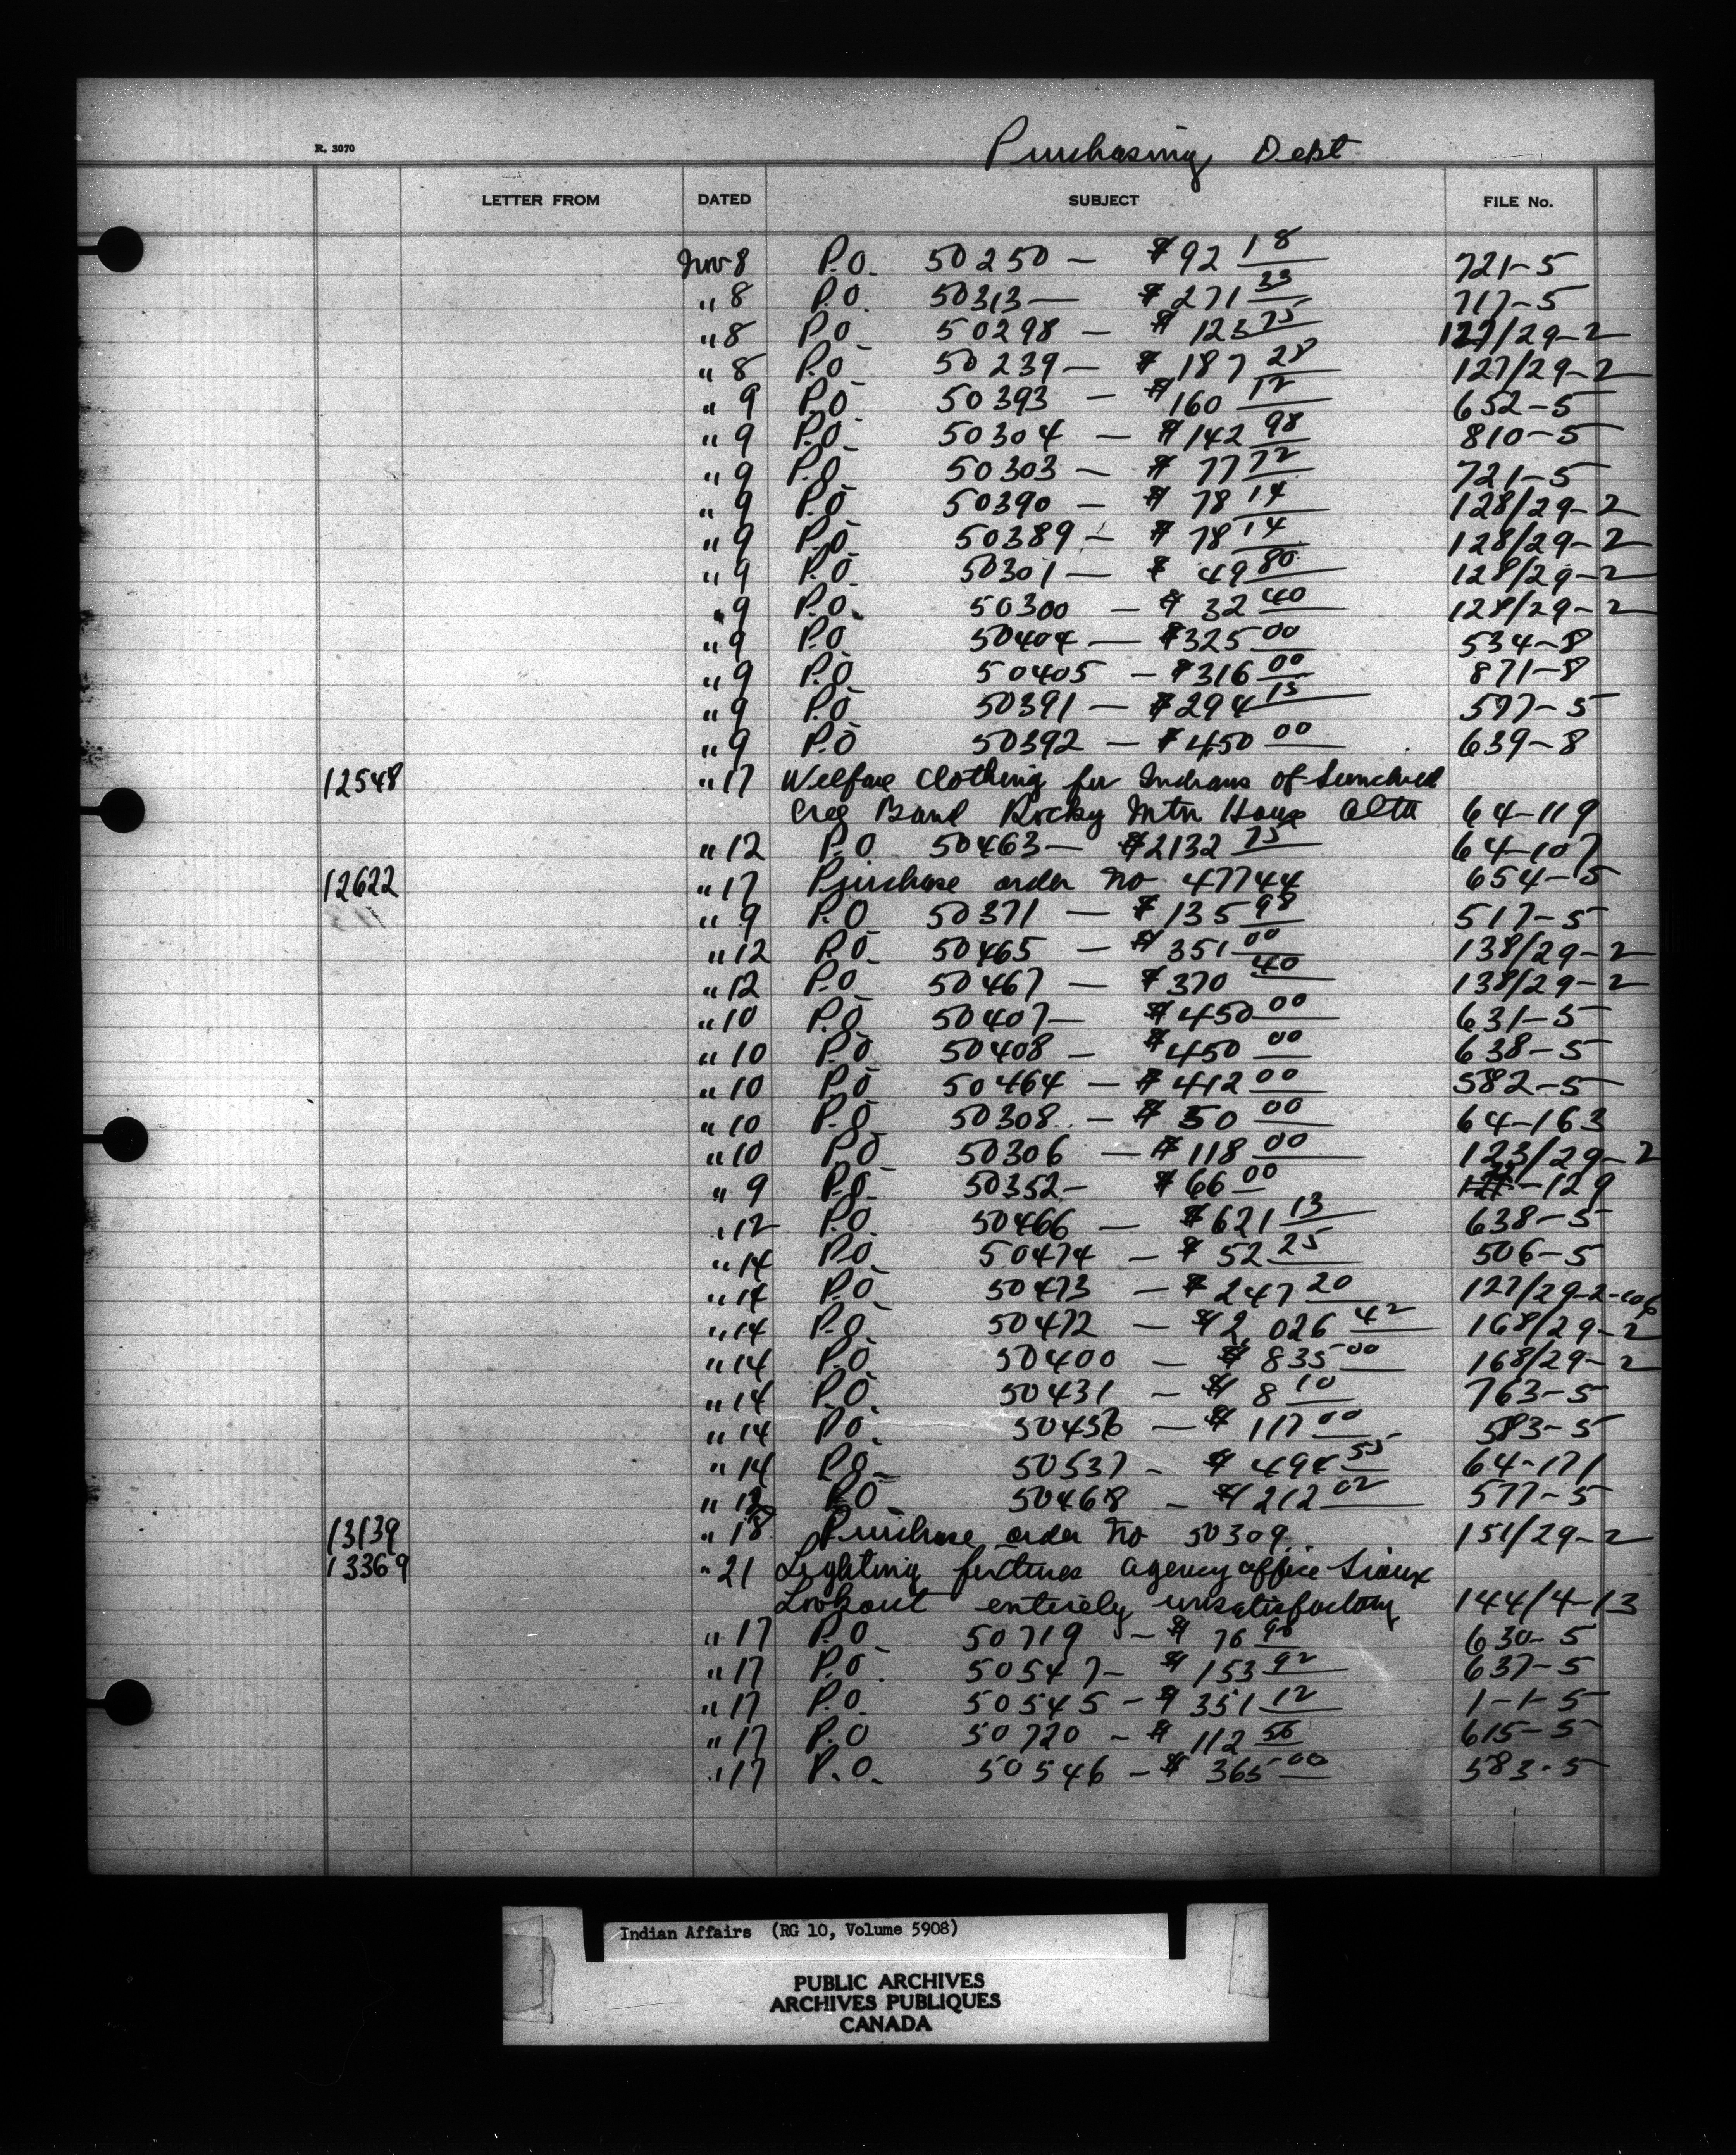 R. 3070 Purchasing Dept
LETTER FROM DATED SUBJECT FILE No.
Nov 8 P.O. 50250 — $92 18 721-5
" 8 P.O 50313 — $271 33 717-5
" 8 P.O 50298 — $ 123 75 127/29-2
" 8 P.O 50239 — $ 187 28 127/29-2
" 9 P.O 50393 — $160 12 652-5
" 9 P.O. 50304 — $142 98 810-5
" 9 P.O 50303 — $ 77 72 721-5
" 9 P.O 50390 — $ 78 14 128/29-2
" 9 P.O 50389 — $ 78 14 128/29-2
" 9 P.O. 50301 — $ 49 80 128/29-2
" 9 P.O. 50300 — $ 32 40 128/29-2
" 9 P.O. 50404 — $325 00 534-8
" 9 P.O 50405 — $316 00 871-8
" 9 P.O 50391 — $294 15 597-5
" 9 P.O 50392 — $450 00 639-8
12548 " 17 Welfare clothing for Indians of Sunchild
Cree Band Rocky Mtn House Alta 64-119
" 12 P.O. 50463 — $2132 75 64-107
12622 " 17 Purchase order no 47744 654-5
" 9 P.O 50371 — $135 98 517-5
" 12 P.O. 50465 — $351 00 138/29-2
" 12 P.O 50467 — $370 40 138/29-2
" 10 P.O 50407 — $450 00 631-5
" 10 P.O 50408 — $450 00 638-5
" 10 P.O 50464 — $412 00 582-5
" 10 P.O 50308 — $ 50 00 64-163
" 10 P.O 50306 — $118 00 123/29-2
" 9 P.O. 50352 — $66 00 -129
" 12 P.O 50466 — $621 13 638-5
" 14 P.O 50474 — $ 52 25 506-5
" 14 P.O 50473 — $247 20 127/29-2-106
" 14 P.O. 50472 — $2,026 42 168/29-2
" 14 P.O 50400 — $ 835 00 168/29-2
" 14 P.O. 50431 — $ 8 10 763-5
" 14 P.O. 50456 — $ 117 00 583-5
" 14 P.O. 50537 — $ 494 55 64-171
" P.O 50468 — $212 02 577-5
13139 " 18 Purchase order no 50309 151/29-2
13369 " 21 Lighting fixtures agency office Sioux
Lookout entirely unsatisfactory 144/4-13
" 17 P.O 50719 — $ 76 98 630-5
" 17 P.O. 50547 — $ 153 92 637-5
" 17 P.O. 50545 — $ 351 12 1-1-5
" 17 P.O 50720 — $ 112 56 615-5
" 17 P.O. 50546 — $ 365 00 583-5
Indian Affairs (RG 10, Volume 5908)
PUBLIC ARCHIVES
ARCHIVES PUBLIQUES
CANADA